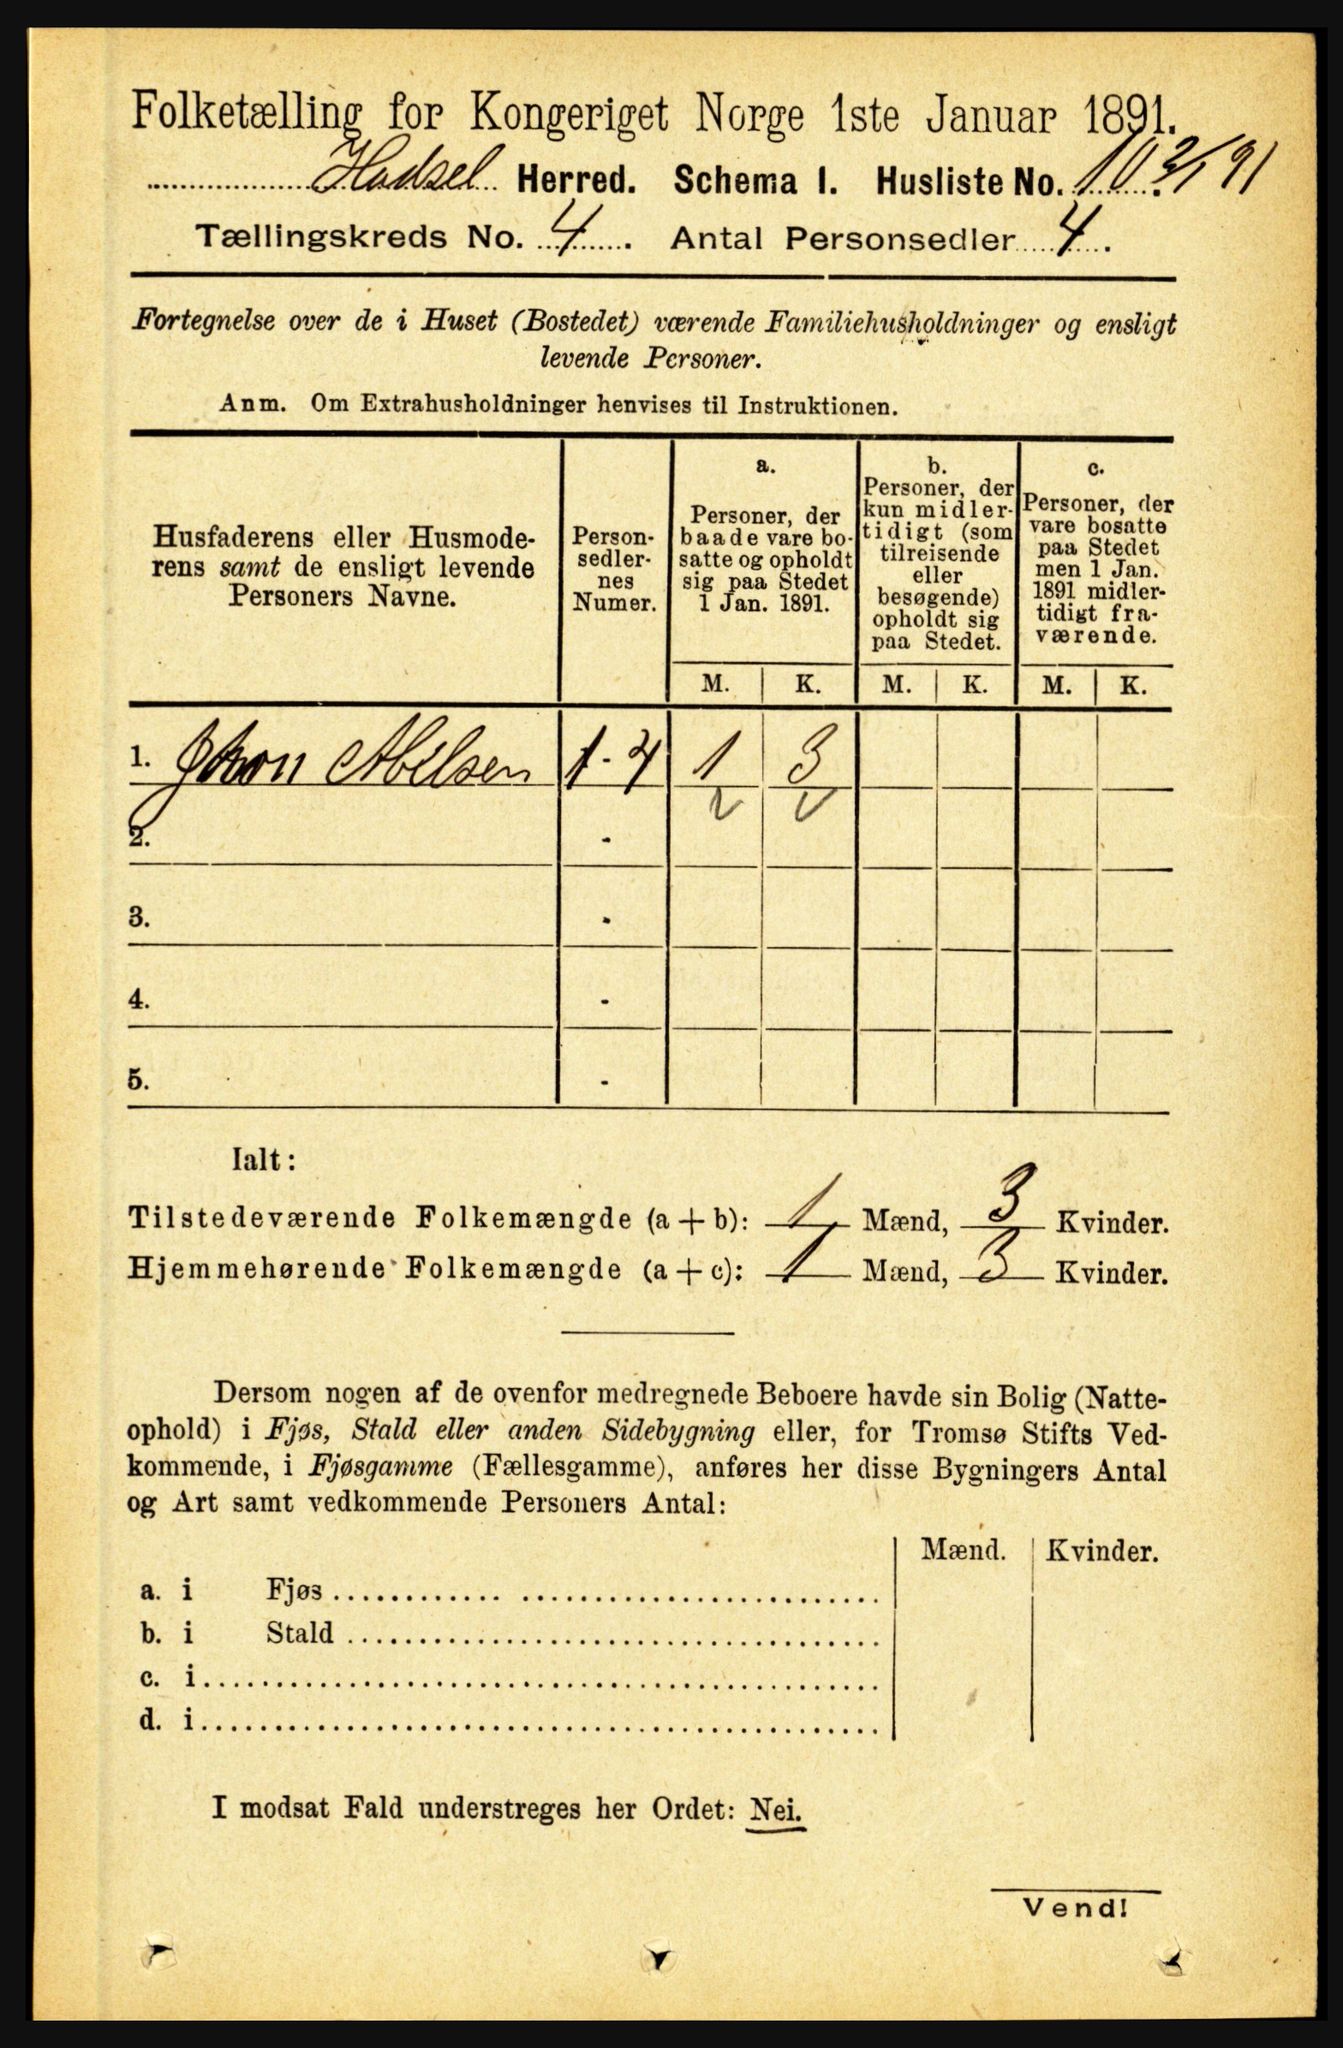 Folketælling for Kongeriget Norge 1ste Januar 1891.
Hadsel Herred. Schema I. Husliste No. 10 2/1 91
Tællingskreds No. 4. Antal Personsedler 4.
Fortegnelse over de i Huset (Bostedet) værende Familiehusholdninger og ensligt
levende Personer.
Anm. Om Extrahusholdninger henvises til Instruktionen.
Husfaderens eller Husmode-
rens samt de ensligt levende
Personers Navne.
Person-
sedler-
nes
Numer.
a.
Personer, der
baade vare bo-
satte og opholdt
sig paa Stedet
1 Jan. 1891.
b.
Personer, der
kun midler-
tidigt (som
tilreisende
eller
besøgende)
opholdt sig
paa Stedet.
c.
Personer, der
vare bosatte
paa Stedet
men 1 Jan.
1891 midler-
tidigt fra-
værende.
M. K. M. K. M. K.
1. Abelsen 1 - 4 1 3
2. -
3. -
4. -
5. -
Ialt:
Tilstedeværende Folkemængde (a + b): 1 Mænd, 3 Kvinder.
Hjemmehørende Folkemængde (a + c): 1 Mænd, 3 Kvinder.
Dersom nogen af de ovenfor medregnede Beboere havde sin Bolig (Natte-
ophold) i Fjøs, Stald eller anden Sidebygning eller, for Tromsø Stifts Ved-
kommende, i Fjøsgamme (Fællesgamme), anføres her disse Bygningers Antal
og Art samt vedkommende Personers Antal:
Mænd. Kvinder.
a. i Fjøs
b. i Stald
c. i
d. i
I modsat Fald understreges her Ordet: Nei.
Vend!